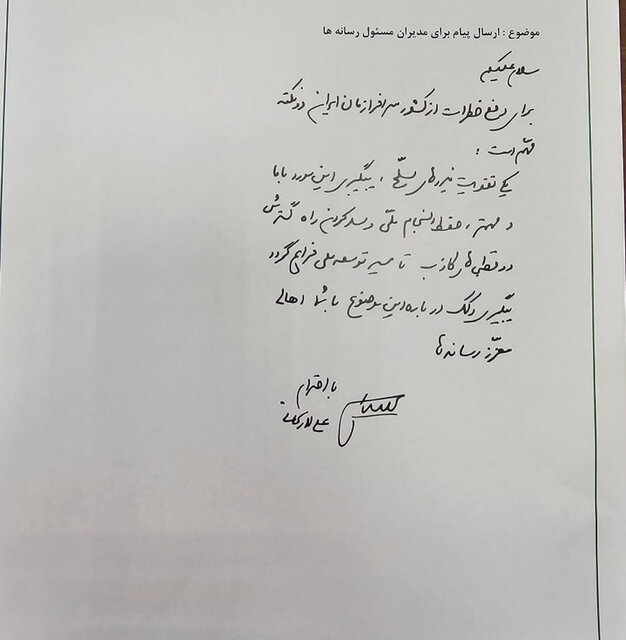 موضوع : ارسال پیام برای مدیران مسئول رسانه ها
سلام علیکم
برای رفع خطرات از کشور سرافرازمان ایران دو نکته
مهّم است :
یکی تقویت نیروهای مسلّح ، پیگیری این مورد با ما
و مهمتر ، حفظ انسجام ملّی و سد کردن راه گسترش
دو قطبی‌های کاذب تا مسیر توسعه ملی فراهم گردد
پیگیری و کمک در باره این موضوع با شما اهالی
معزّز رسانه‌ها
با احترام
علی لاریجانی